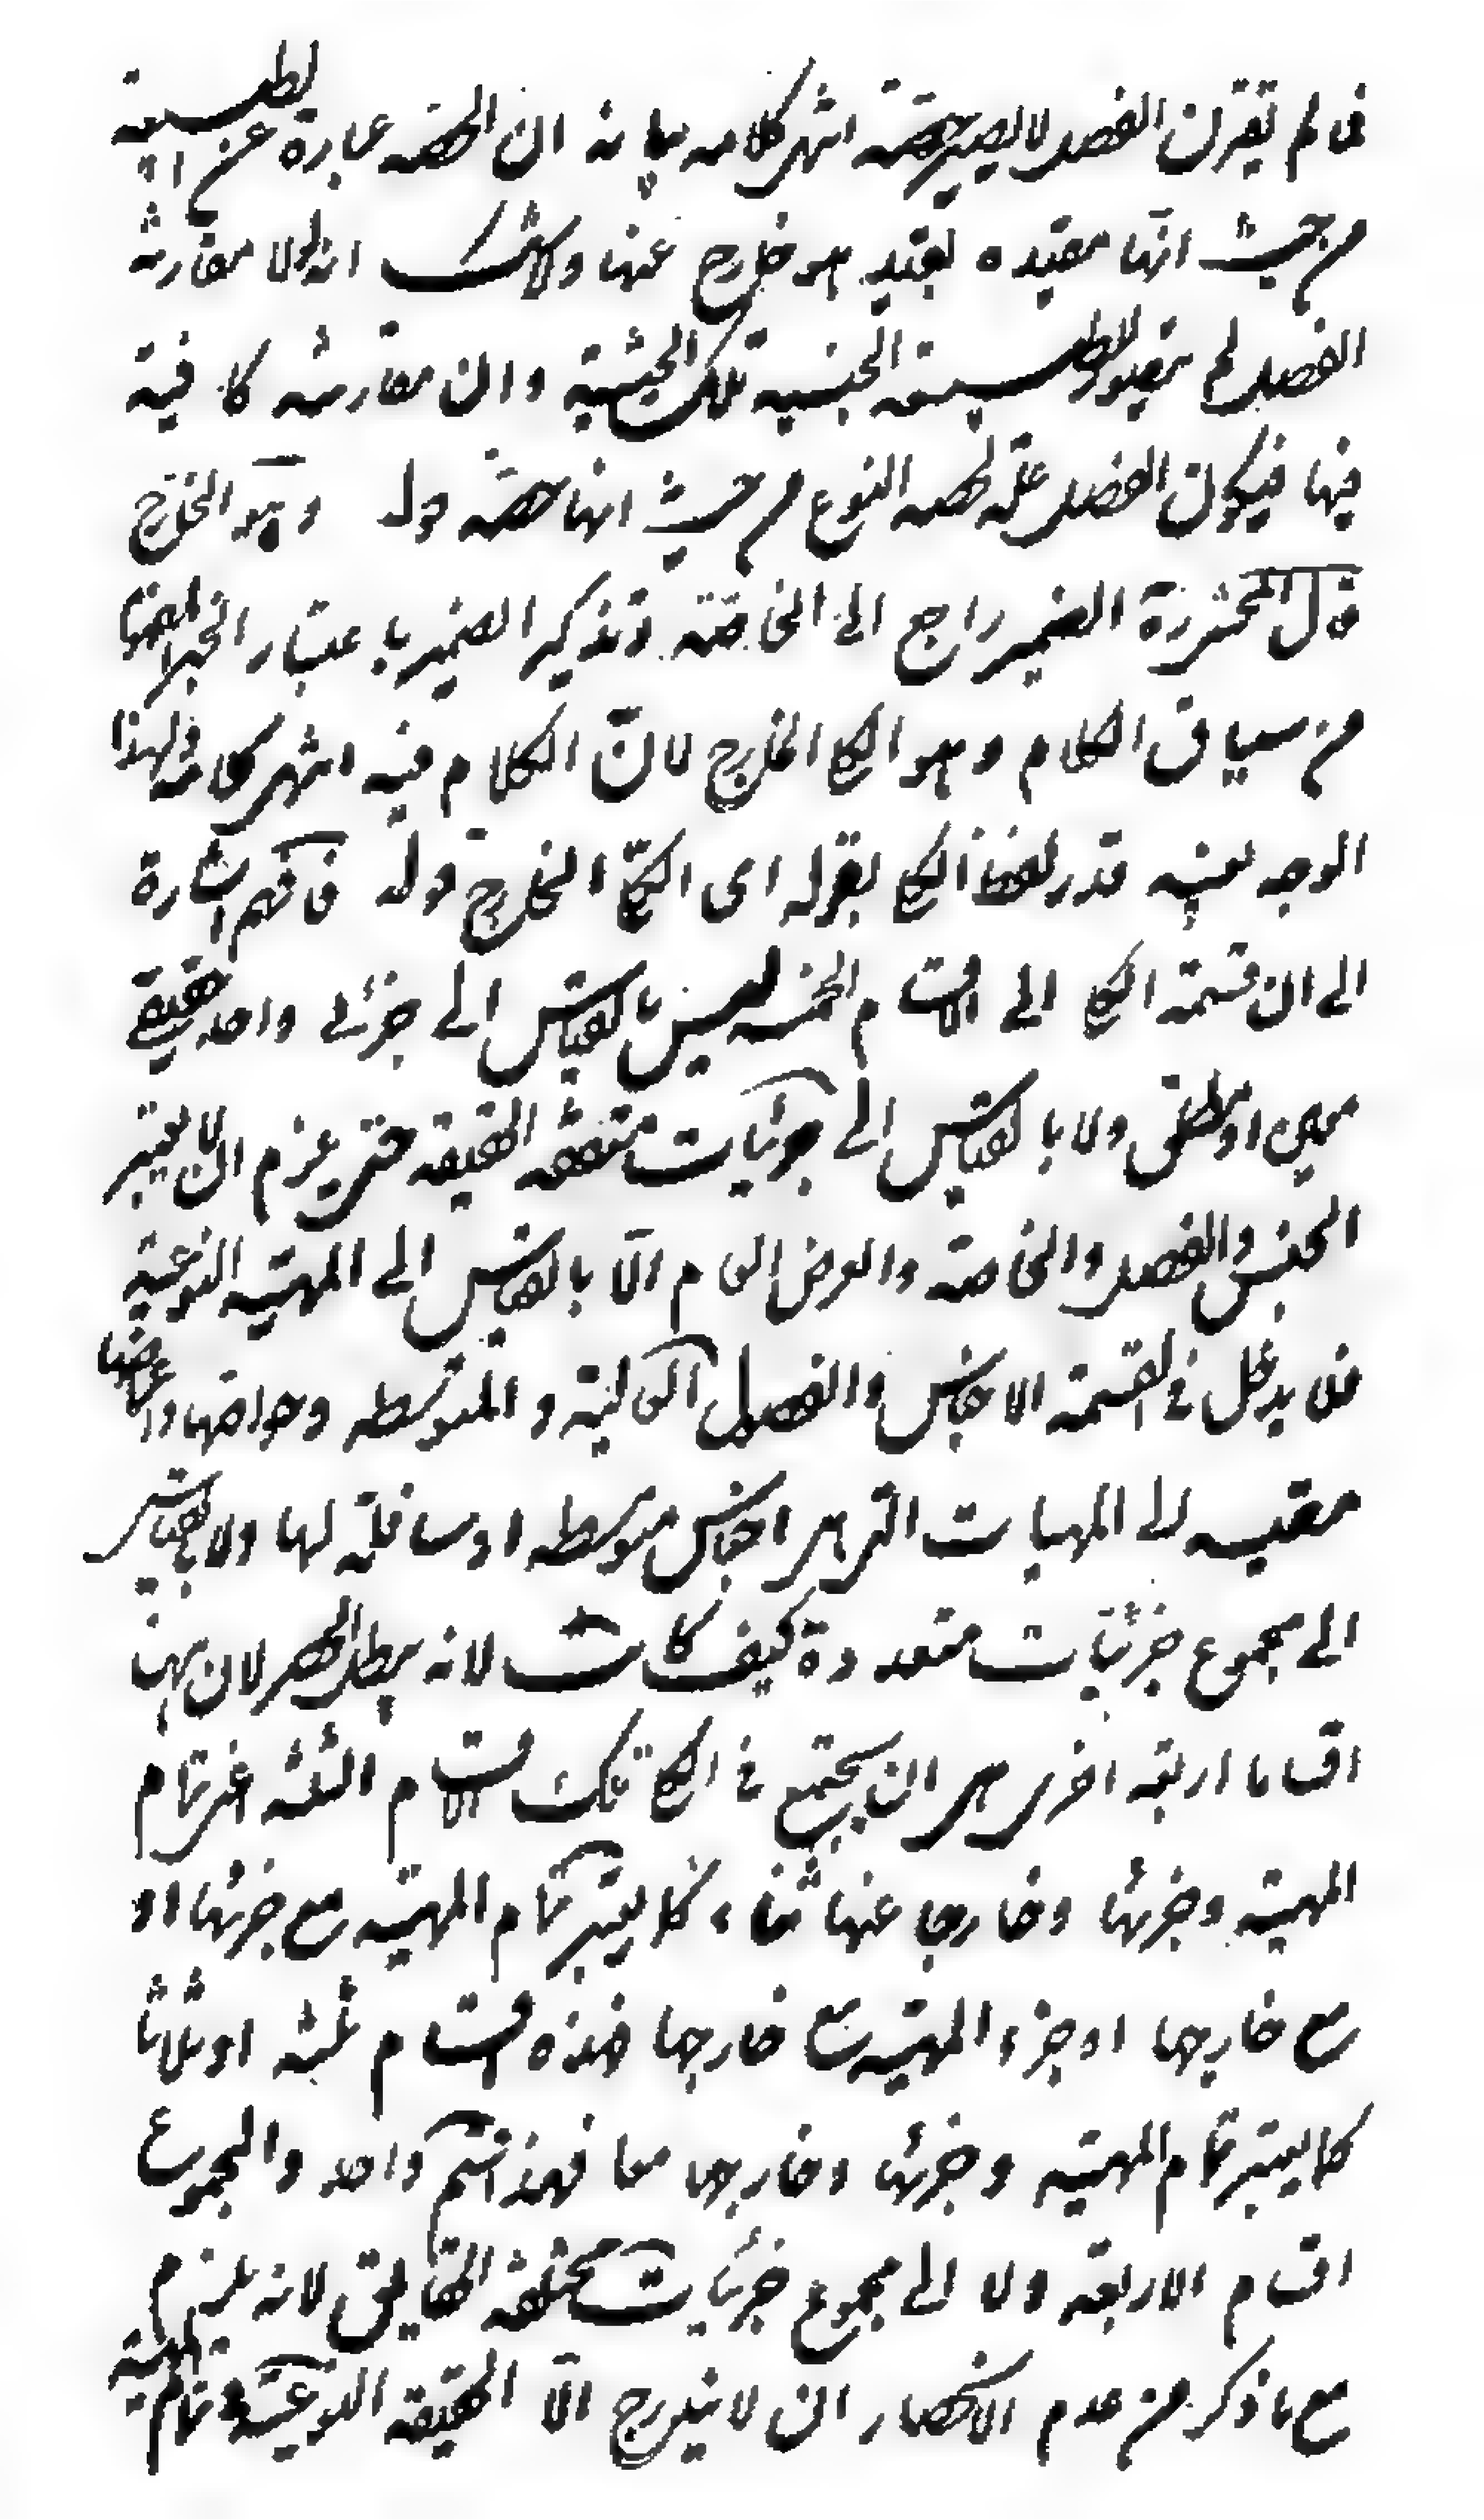 فما لم تقترن الفصل لا يصير حصة انتهى كلامه بيانه ان الحصه عبارة عن الطبيعة
من حيث انها مقيده بقيد هو خارج عنها ولا شك انه لولا مقارنة
الفصل لم تصير للطبيعة الجنسية تلك الحيثية وان مقارنته كافية
فيها فيكون الفصل علة لحصه النوع من حيث انها حصة قوله وهو الخارج
قال المحشى رة الضمير راجع الى الخاصة وتذكير الضمير باعتبار الخبر
من سياق الكلام وهو الكلي الخارج لان الكلام فيه انتهى كلامه ولهذا
الوجه بعينه قدر لفظ الكلي بقوله اى الكلي الخارج قوله فافهم اشارة
الى ان قسمة الكلي الى الاقسام الخمسه ليس بالقياس الى جزئى واحد حقيقى
معين او مطلق ولا بالقياس الى جزئيات متفقه الحقيقه حتى يلزم ان لا يعتبر
الجنس والفصل والخاصة والعرض العام الا بالقياس الى المهية النوعية
فلا يدخل في القسمة الاجناس والفصول العالية والمتوسطه وخواصها واعراضها
مقيسه الى المهيات التى هى اجناس متوسطه او سافلة لها ولا بالقياس
الى مجموع جزئيات متعددة كيف كانت لانه يبطل الحصر لان ههنا
اقساما اربعة اخرى هى ان يجتمع في الكلي تلك الاقسام الثلثه اعنى تمام
المهية وجزئها وخارجا عنها ثناء كما يعتبر تمام المهية مع جزئها او
مع خارجها او جزء المهية مع خارجها فهذه اقسام ثلثه او ثلاثا
كما يعتبر تمام المهية وجزئها وخارجها معا فهذا قسم واحد والمجموع
اقسام الاربعة ولا الى مجموع جزئيات مختلفة الحقايق لانه يلزم
مع ما ذكر من عدم الانحصار ان لا يندرج الا الحقيقة النوعية وتمام المهية